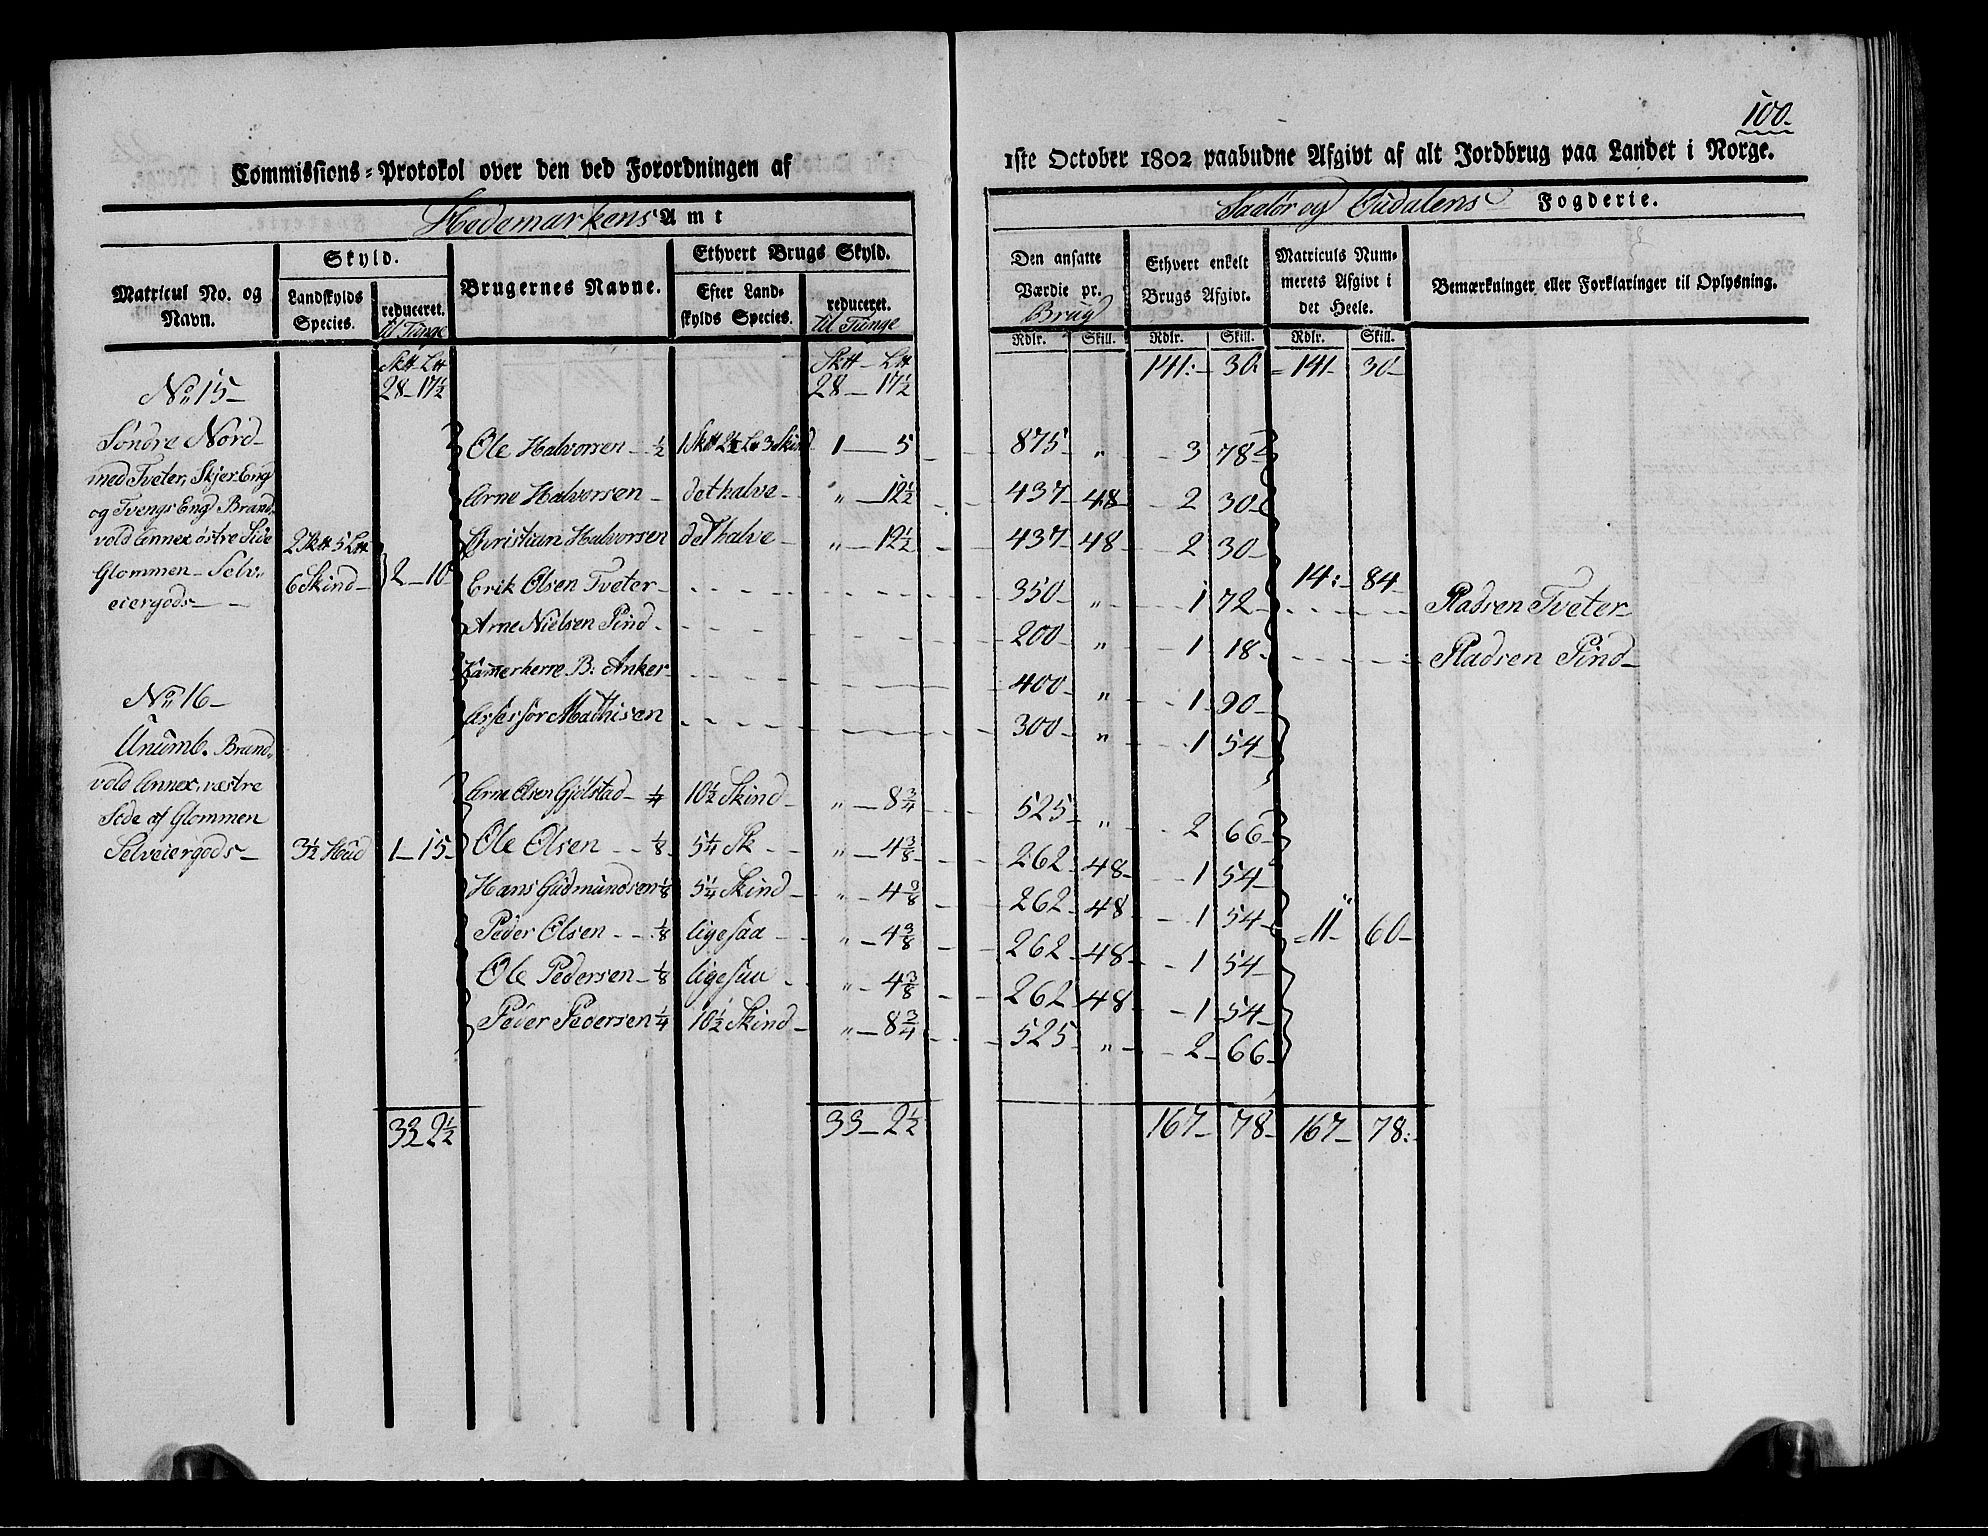 100.
Commissions-Protokol over den ved Forordningen af 1ste October 1802 paabudne Afgivt af alt Jordbrug paa Landet i Norge.
Hedemarkens Amt
Soelør og Oudalens Fogderie.
Matricul No. og Navn.
Skyld.
Landskylds Species.
reduceret. til Tunge
Brugernes Navne.
Ethvert Brugs Skyld.
Efter Landskylds Species.
reduceret. til Tunge
Den ansatte Værdie pr. Brug
Ethvert enkelt Brugs Afgivt.
Matriculs Nummerets Afgivt i det Heele.
Bemærkninger eller Forklaringer til Oplysning.
Rdlr. Skill. Rdlr. Skill. Rdlr. Skill.
Sk℔ L℔ Sk℔ - L℔
28-17½ 28-17½ 141:- 30- 141- 30-
No 15-
Søndre Nord-
med Tveter, Skjer Eng
og Tvengs Eng Brand-
vold Annex østre Side
Glommen - Selv-
eiergods-
2 Sk℔ 5 L℔
6 Skind-
2-10-
14:- 84-
Ole Halvorsen - ½ 1 Sk℔ 2½ L℔ 3 Skind 1-5 875- „ 3 78-
Arne Halvorsen - det halve - „-12½ 437- 48- 2 30-
Christian Halvorsen det halve - „-12½ 437- 48- 2 30-
Erik Olsen Tveter - 350- „ 1 72- Pladsen Tveter
Arne Nielsen Pind - 200- „ 1 18- Pladsen Pind-
Kamerherre B: Anker - 400- „ 1 90-
Assessor Mathisen 300- „ 1 54-
No 16-
Unumb. Brand-
vold Annex, væstre
Side af Glommen
Selveiergods-
3½ Hud
1-15-
11- 60-
Arne Olsen Gjølstad - ¼ 10½ Skind- „-8¾ 525- „ 2 66-
Ole Olsen - ⅛ 5¼ Sk- „-4⅜ 262- 48- 1 54-
Hans Gudmundsen ⅛ 5¼ Skind- „-4⅜ 262- 48- 1 54-
Peder Olsen - ⅛ ligesaa „-4⅜ 262- 48- 1 54-
Ole Pedersen - ⅛ ligesaa „-4⅜ 262- 48- 1 54-
Peder Pedersen ¼ 10½ Skind- „-8¾ 525- „ 2- 66-
33 2½ 33-2½ 167- 78- 167- 78:-